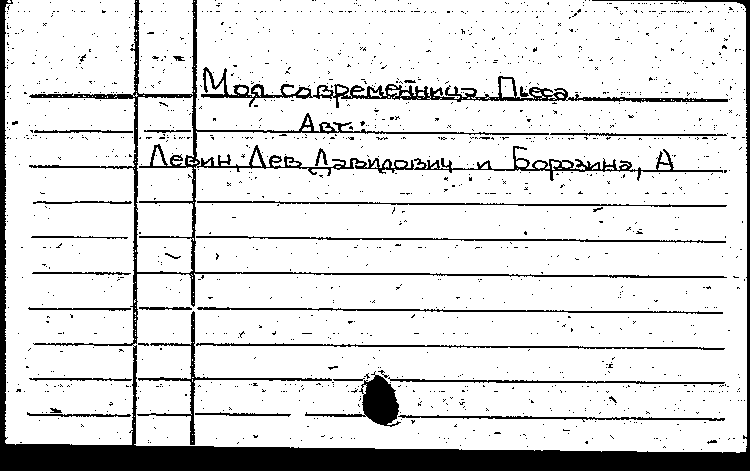 Моя современница. Пьеса.
Авт.:
Левин, Лев Давидович и Борозина, А